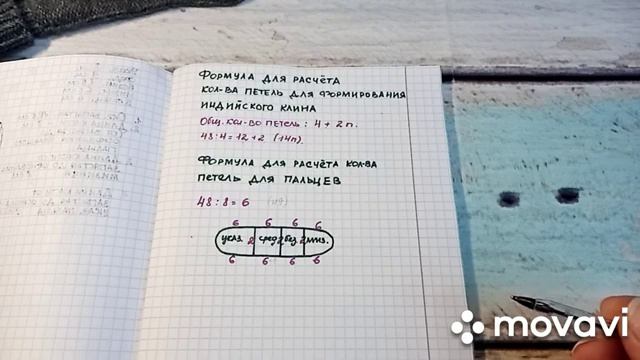 ФОРМУЛА ДЛЯ РАСЧЁТА
КОЛ-ВА ПЕТЕЛЬ ДЛЯ ФОРМИРОВАНИЯ
ИНДИЙСКОГО КЛИНА
ОБЩ. КОЛ-ВО ПЕТЕЛЬ : 4 + 2 п.
48 : 4 = 12 + 2 (14п).
ФОРМУЛА ДЛЯ РАСЧЁТА КОЛ-ВА
ПЕТЕЛЬ ДЛЯ ПАЛЬЦЕВ
48 : 8 = 6
6 6 6 6
УКАЗ. 2 СРЕД 2 БЕЗ 2 МИЗ.
6 6 6 6
movavi